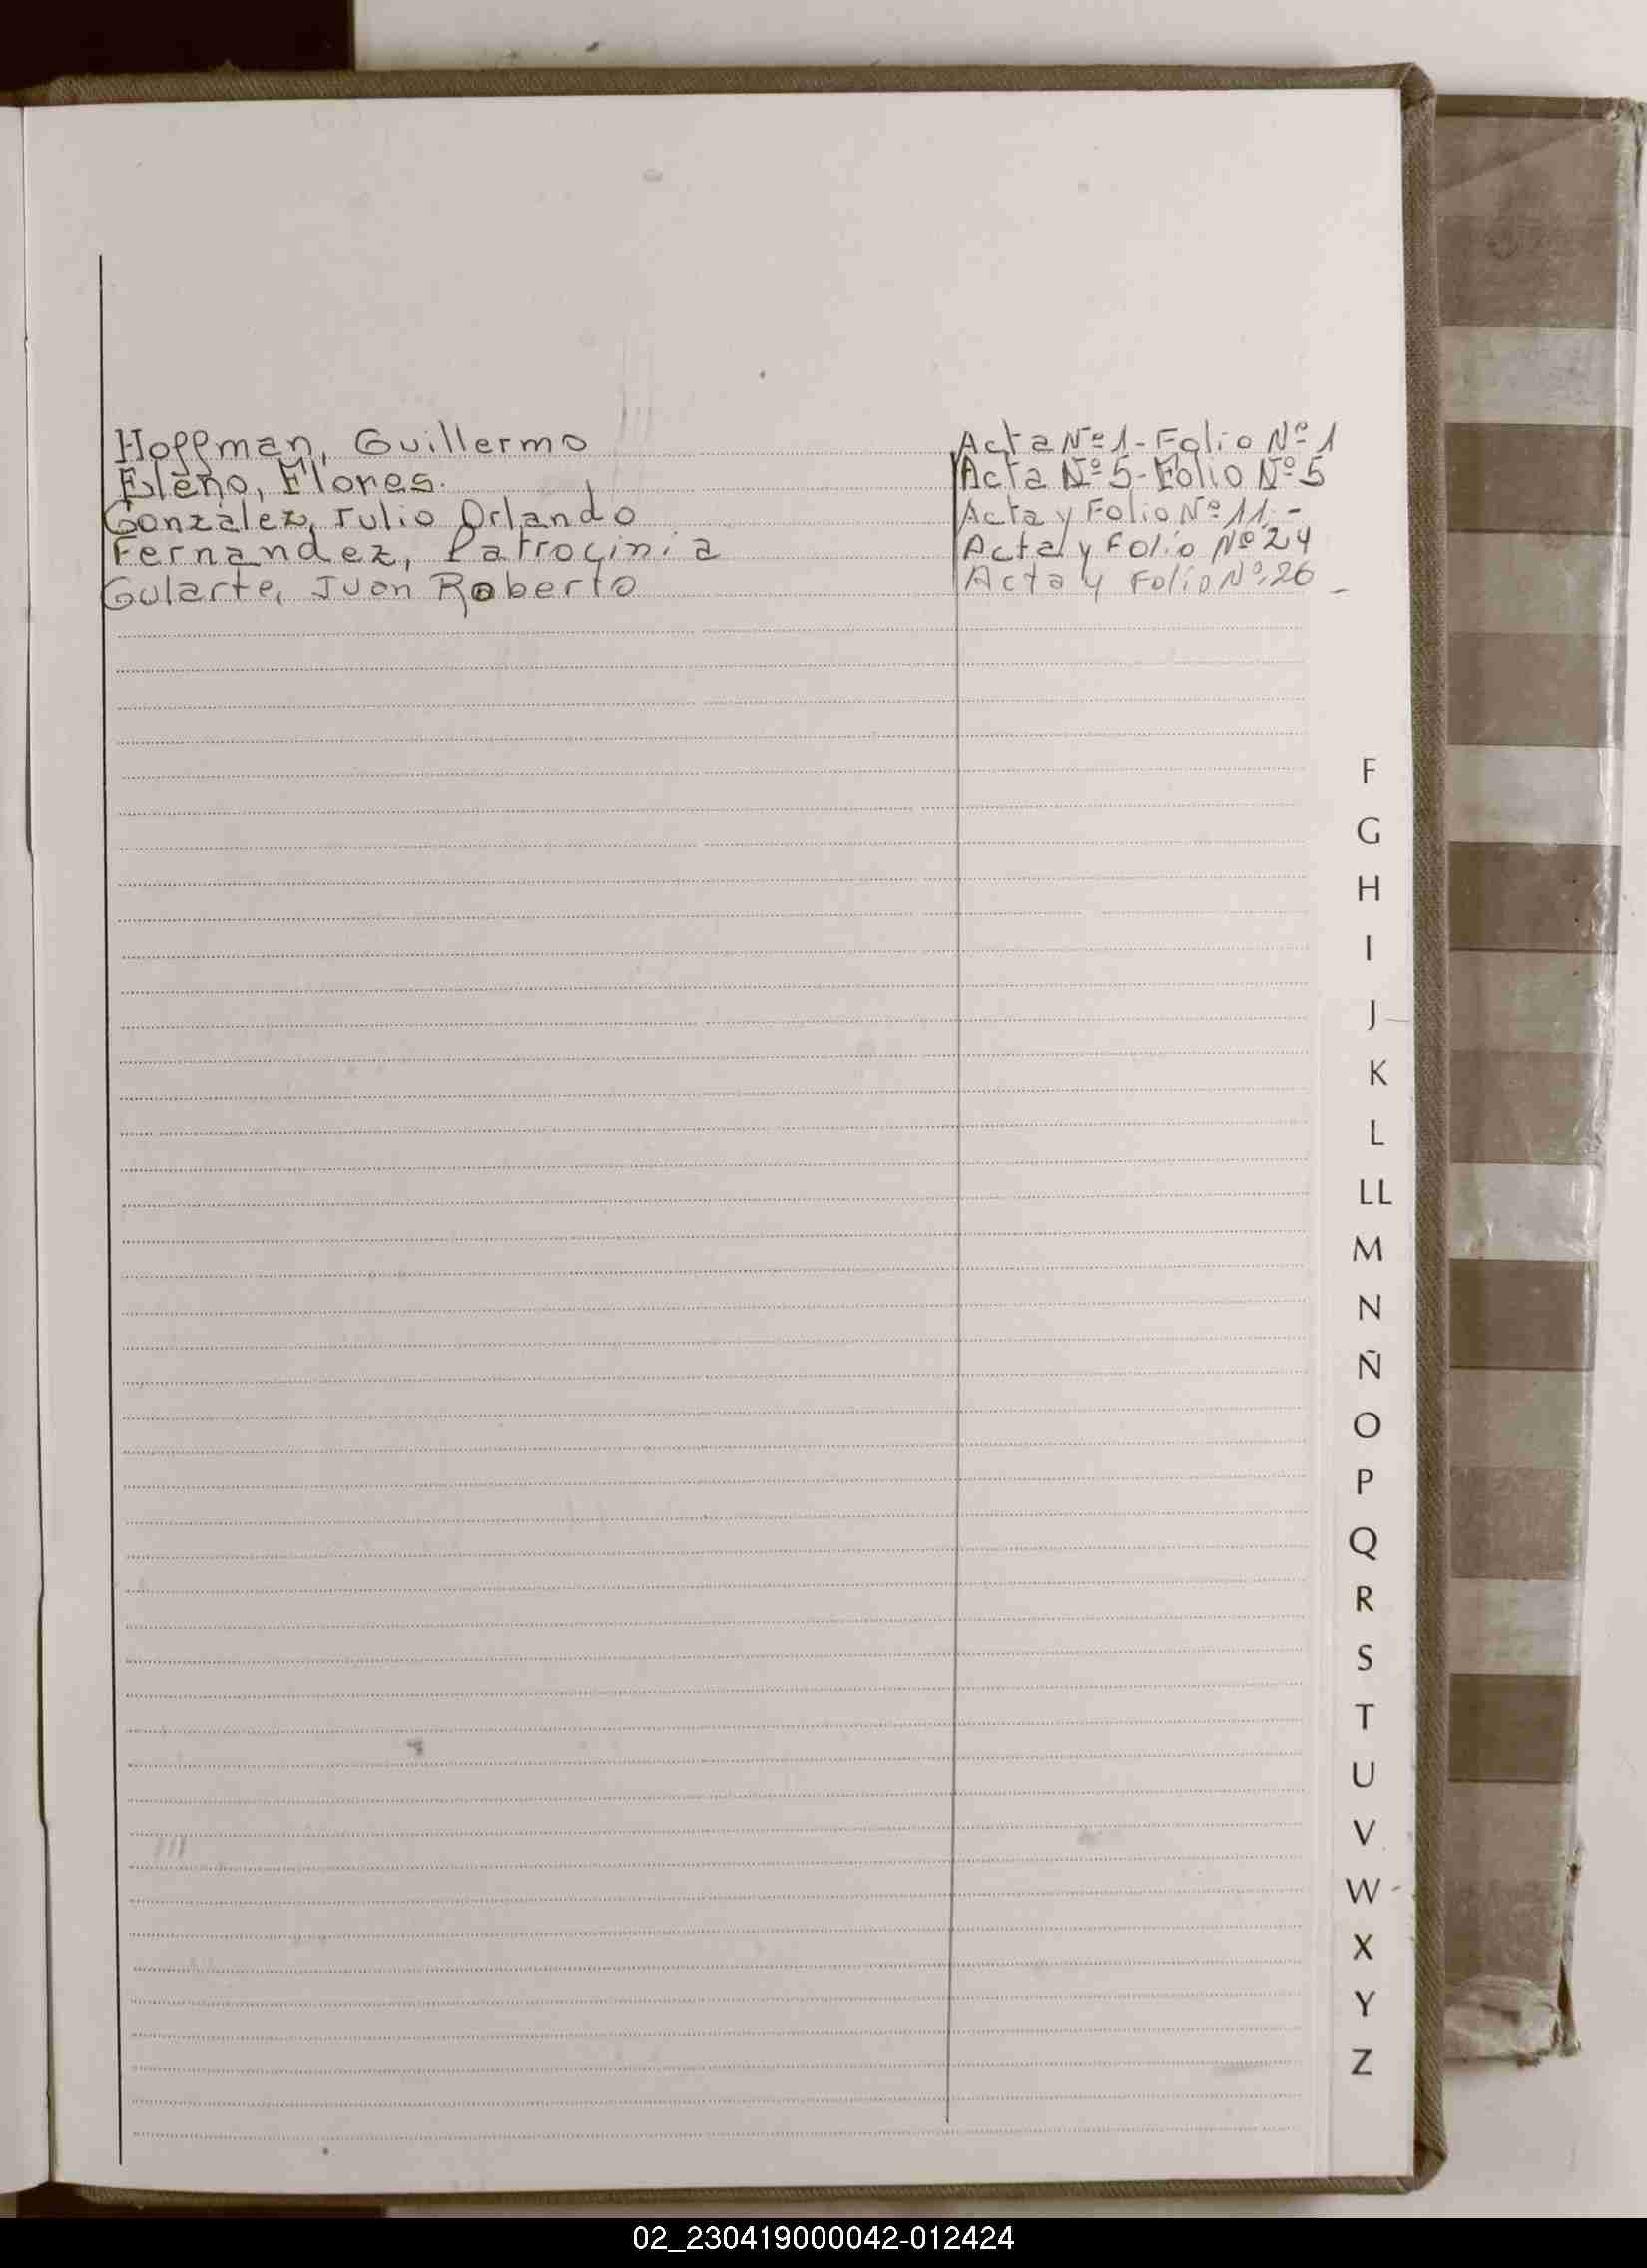 Hoffman, Guillermo Acta Nº 1 - Folio Nº 1
Eleno, Flores. Acta Nº 5 - Folio Nº 5
González, Julio Orlando Acta y Folio Nº 11. -
Fernandez, Patrocinia Acta y Folio Nº 24
Gularte, Juan Roberto Acta y Folio Nº 26 -
F
G
H
I
J
K
L
LL
M
N
Ñ
O
P
Q
R
S
T
U
V
W
X
Y
Z
02_230419000042-012424